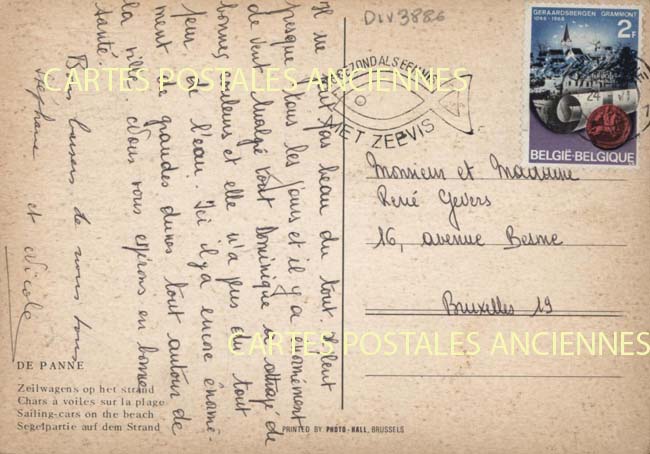 DIV3886
GERAARDSBERGEN GRAMMONT
1068-1968
2F
BELGIË-BELGIQUE
GEZOND ALS EEN
MET ZEEVIS
CARTES POSTALES ANCIENNES
Il ne fait pas beau du tout. Il pleut
presque tous les jours et il y a énormément
de vent. Malgré tout Dominique a attrapé de
bonnes couleurs et elle n'a pas du tout
peur de l'eau. Ici il y a encore énormé-
ment de grandes dunes tout autour de
la ville. Nous vous espérons en bonne
santé.
Bons baisers de nous tous,
Stéphane et Nicole
Monsieur et Madame
René Gevers
16, avenue Besme
Bruxelles 19
CARTES POSTALES ANCIENNES
DE PANNE
Zeilwagens op het strand
Chars à voiles sur la plage
Sailing-cars on the beach
Segelpartie auf dem Strand
PRINTED BY PHOTO-HALL, BRUSSELS